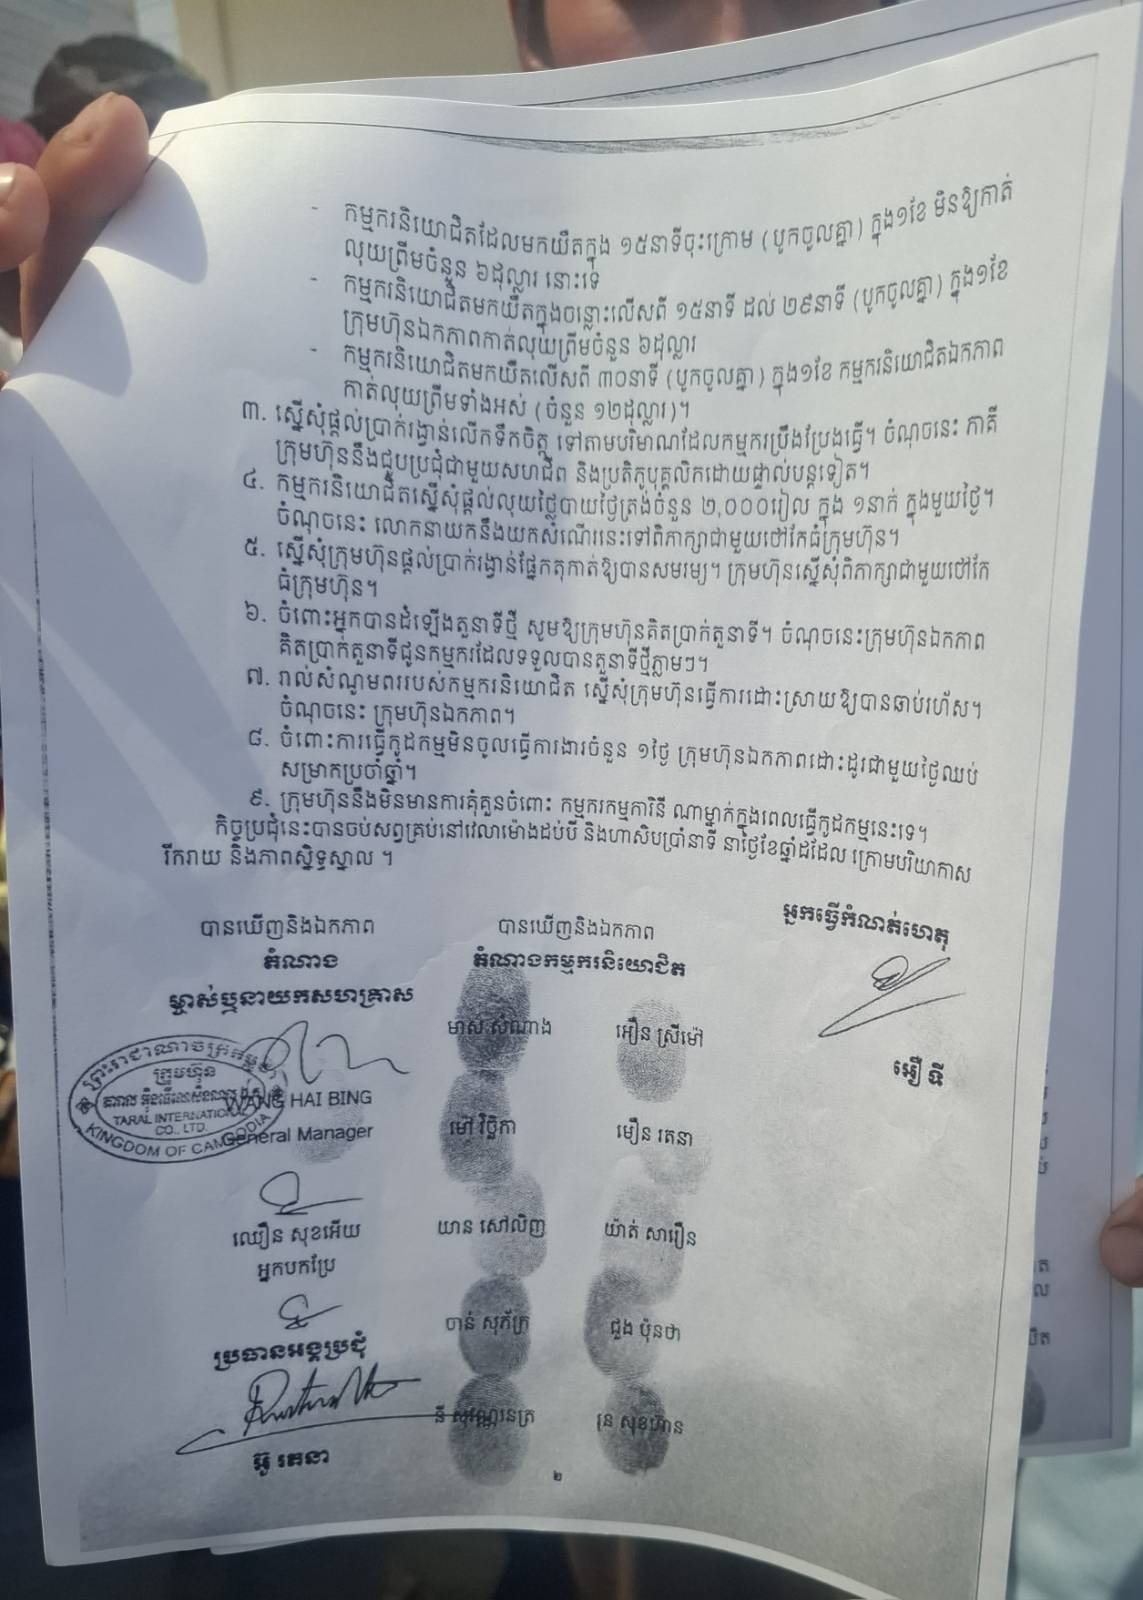 - កម្មករនិយោជិតដែលមកយឺតក្នុង ១៥នាទីចុះក្រោម (បូកចូលគ្នា) ក្នុង១ខែ មិនឱ្យកាត់
លុយព្រីមចំនួន ៦ដុល្លារ នោះទេ
- កម្មករនិយោជិតមកយឺតក្នុងចន្លោះលើសពី ១៥នាទី ដល់ ២៩នាទី (បូកចូលគ្នា) ក្នុង១ខែ
ក្រុមហ៊ុនឯកភាពកាត់លុយព្រីមចំនួន ៦ដុល្លារ
- កម្មករនិយោជិតមកយឺតលើសពី ៣០នាទី (បូកចូលគ្នា) ក្នុង១ខែ កម្មករនិយោជិតឯកភាព
កាត់លុយព្រីមទាំងអស់ (ចំនួន ១២ដុល្លារ)។
៣. ស្នើសុំផ្តល់ប្រាក់រង្វាន់លើកទឹកចិត្ត ទៅតាមបរិមាណដែលកម្មករប្រឹងប្រែងធ្វើ។ ចំណុចនេះ ភាគី
ក្រុមហ៊ុននឹងជួបប្រជុំជាមួយសហជីព និងប្រតិភូបុគ្គលិកដោយផ្ទាល់បន្តទៀត។
៤. កម្មករនិយោជិតស្នើសុំផ្តល់លុយថ្លៃបាយថ្ងៃត្រង់ចំនួន ២,០០០រៀល ក្នុង ១នាក់ ក្នុងមួយថ្ងៃ។
ចំណុចនេះ លោកនាយកនឹងយកសំណើរនេះទៅពិភាក្សាជាមួយថៅកែធំក្រុមហ៊ុន។
៥. ស្នើសុំក្រុមហ៊ុនផ្តល់ប្រាក់រង្វាន់ផ្នែកតុកាត់ឱ្យបានសមរម្យ។ ក្រុមហ៊ុនស្នើសុំពិភាក្សាជាមួយថៅកែ
ធំក្រុមហ៊ុន។
៦. ចំពោះអ្នកបានដំឡើងតួនាទីថ្មី សូមឱ្យក្រុមហ៊ុនគិតប្រាក់តួនាទី។ ចំណុចនេះក្រុមហ៊ុនឯកភាព
គិតប្រាក់តួនាទីជូនកម្មករដែលទទួលបានតួនាទីថ្មីភ្លាមៗ។
៧. រាល់សំណូមពររបស់កម្មករនិយោជិត ស្នើសុំក្រុមហ៊ុនធ្វើការដោះស្រាយឱ្យបានឆាប់រហ័ស។
ចំណុចនេះ ក្រុមហ៊ុនឯកភាព។
៨. ចំពោះការធ្វើកូដកម្មមិនចូលធ្វើការងារចំនួន ១ថ្ងៃ ក្រុមហ៊ុនឯកភាពដោះដូរជាមួយថ្ងៃឈប់
សម្រាកប្រចាំឆ្នាំ។
៩. ក្រុមហ៊ុននឹងមិនមានការគុំគួនចំពោះ កម្មករកម្មការិនី ណាម្នាក់ក្នុងពេលធ្វើកូដកម្មនេះទេ។
កិច្ចប្រជុំនេះបានចប់សព្វគ្រប់នៅវេលាម៉ោងដប់បី និងហាសិបប្រាំនាទី នាថ្ងៃខែឆ្នាំដដែល ក្រោមបរិយាកាស
រីករាយ និងភាពស្និទ្ធស្នាល ។
បានឃើញនិងឯកភាព
តំណាង
ម្ចាស់ឬនាយកសហគ្រាស
ព្រះរាជាណាចក្រកម្ពុជា
ក្រុមហ៊ុន
TARAL INTERNATIONAL
CO., LTD.
KINGDOM OF CAMBODIA
WANG HAI BING
General Manager
ឈឿន សុខអើយ
អ្នកបកប្រែ
ប្រធានអង្គប្រជុំ
អ៊ូ រតនា
បានឃើញនិងឯកភាព
តំណាងកម្មករនិយោជិត
មាស សំណាង អឿន ស្រីម៉ៅ
ម៉ៅ វិច្ឆិកា មឿន រតនា
ឃាន សៅលិញ យ៉ាត់ សារឿន
ចាន់ សុភ័ក្រ ជួង ប៉ុនថា
នី សុវណ្ណនេត្រ រុន សុខហ៊ាន
អ្នកធ្វើកំណត់ហេតុ
អឿ ទី
២